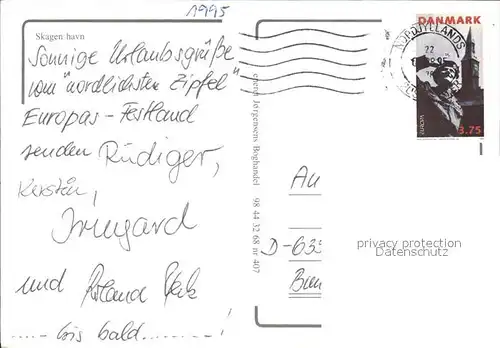 1995
Skagen havn
Sonnige Urlaubsgrüße
vom "nördlichsten Zipfel"
Europas - Festland
senden Rüdiger,
Kerstin,
Irmgard
und Roland
..... bis bald ........!
Jørgensens Boghandel 98 44 32 68 nr 407
DANMARK
3.75
EUROPA
NORDJYLLANDS
22
An
D-635
privacy protection
Datenschutz